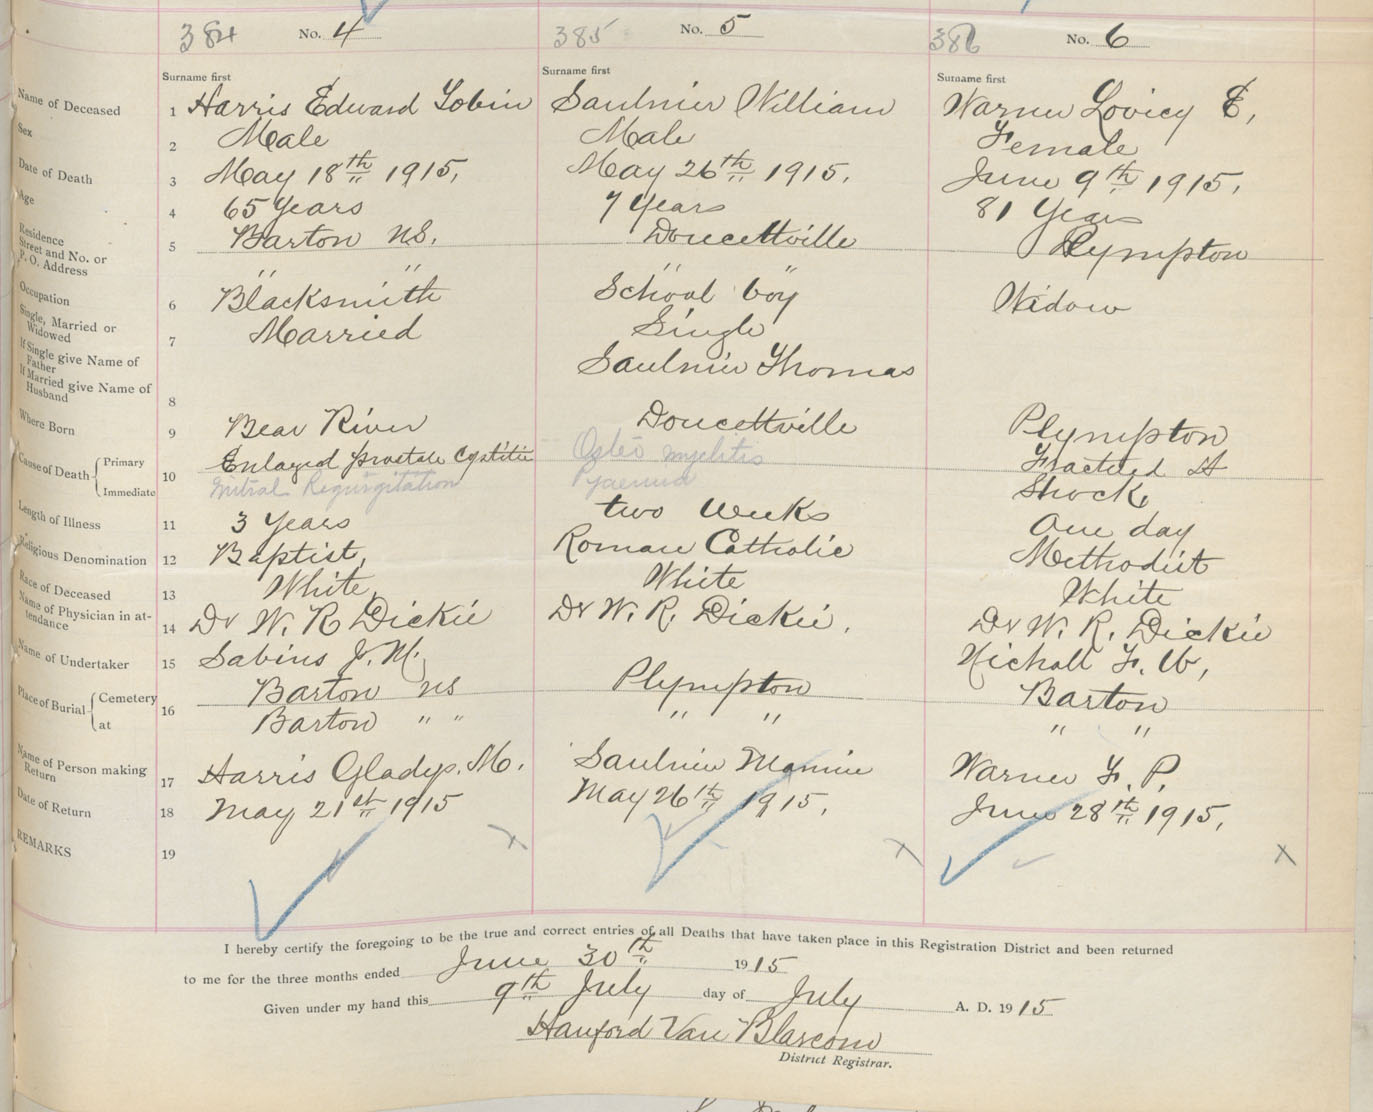 384 No. 4
385 No. 5
386 No. 6
Surname first
Surname first
Surname first
Name of Deceased 1 Harris Edward Tobin Saulnier William Warner Lovicy E,
Sex 2 Male Male Female
Date of Death 3 May 18th 1915, May 26th 1915, June 9th 1915,
Age 4 65 Years 7 Years 81 Years
Residence Street and No. or P. O. Address 5 Barton NS, Doucettville Plympton
" " " "
Occupation 6 Blacksmith School boy
Single, Married or Widowed 7 Married Single Widow
If Single give Name of Father Saulnier Thomas
If Married give Name of Husband 8
Where Born 9 Bear River Doucettville Plympton
Cause of Death Primary Enlarged prostate Cystitis Osteo myelitis Fractured
Immediate 10 Mitral Regurgitation Pyaemia Shock,
Length of Illness 11 3 Years two weeks One day
Religious Denomination 12 Baptist, Roman Catholic Methodist
Race of Deceased 13 White, White White
Name of Physician in attendance 14 Dr W. R Dickie Dr W. R. Dickie, Dr W. R. Dickie
Name of Undertaker 15 Sabins J. M, Nichall F. W,
Place of Burial Cemetery Barton NS Plympton Barton
at 16 Barton " " " " " "
Name of Person making Return 17 Harris Gladys. M. Saulnier Mamie Warner F. P.
Date of Return 18 May 21st 1915 May 26th 1915, June 28th 1915,
REMARKS 19
I hereby certify the foregoing to be the true and correct entries of all Deaths that have taken place in this Registration District and been returned
to me for the three months ended June 30th 1915
Given under my hand this 9th July day of July A. D. 1915
Hanford Van Blarcom
District Registrar.